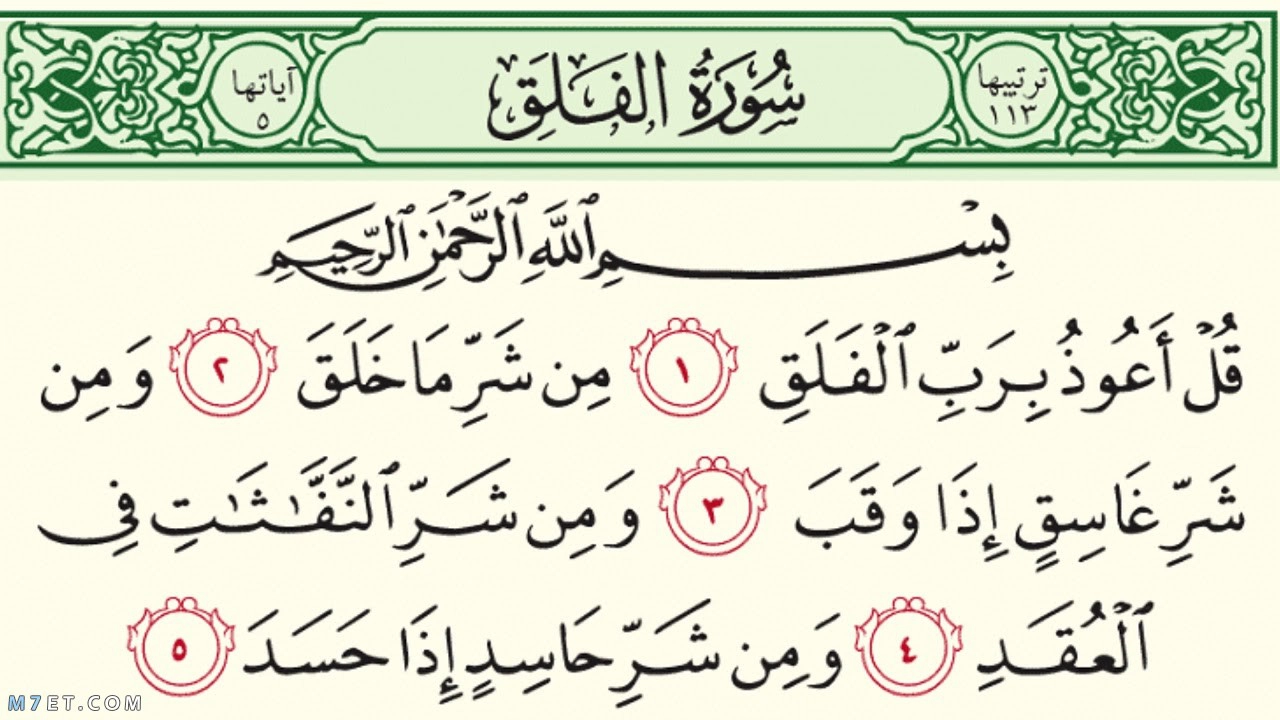 ترتيبها
١١٣
سُورَةُ الفَلَقِ
آياتها
٥
بِسْمِ ٱللَّهِ ٱلرَّحْمَٰنِ ٱلرَّحِيمِ
قُلْ أَعُوذُ بِرَبِّ ٱلْفَلَقِ ١ مِن شَرِّ مَا خَلَقَ ٢ وَمِن
شَرِّ غَاسِقٍ إِذَا وَقَبَ ٣ وَمِن شَرِّ ٱلنَّفَّٰثَٰتِ فِى
ٱلْعُقَدِ ٤ وَمِن شَرِّ حَاسِدٍ إِذَا حَسَدَ ٥
M7ET.COM